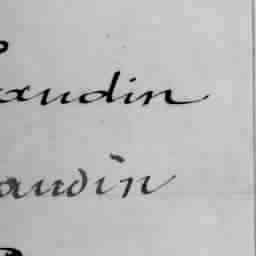 audin
audin